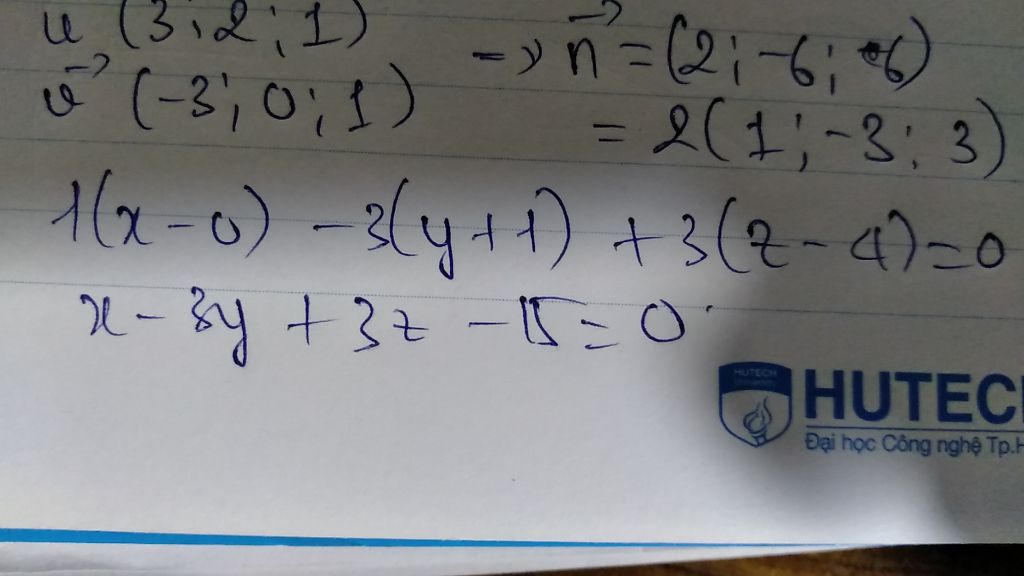 u (3; 2; 1) => n→ = (2; -6; 6)
v→ (-3; 0; 1) = 2(1; -3; 3)
1(x - 0) - 3(y + 1) + 3(z - 4) = 0
x - 3y + 3z - 15 = 0
HUTECH
HUTECH
Đại học Công nghệ Tp.H